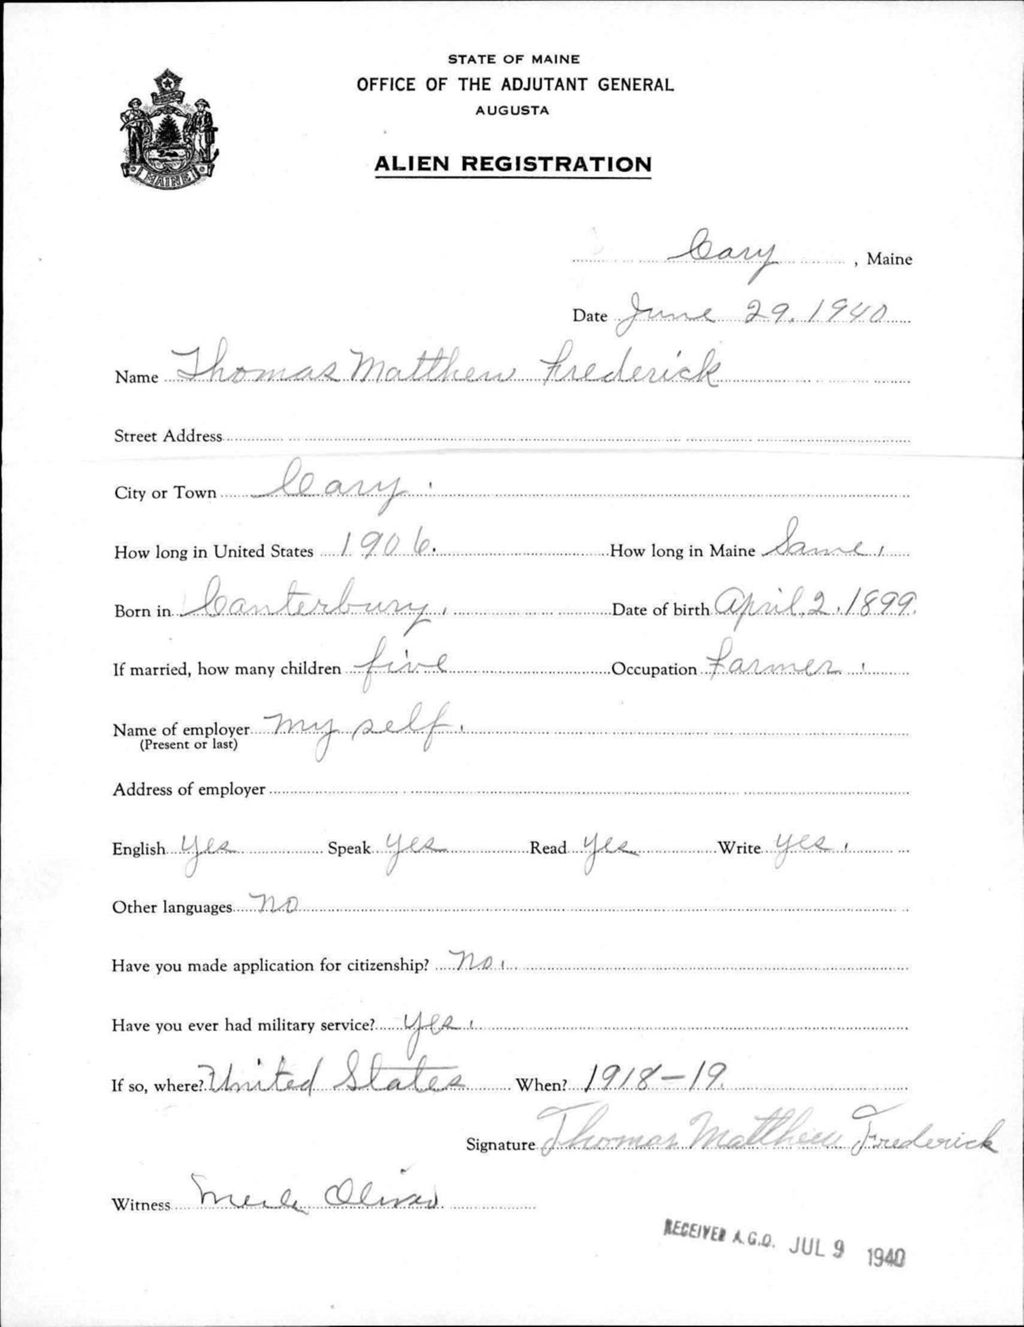 STATE OF MAINE
OFFICE OF THE ADJUTANT GENERAL
AUGUSTA
ALIEN REGISTRATION
MAINE
Cary, Maine
Date June 29, 1940
Name Thomas Matthew Frederick
Street Address
City or Town Cary.
How long in United States 1906. How long in Maine Same.
Born in Canterbury. Date of birth April 2, 1899.
If married, how many children five Occupation Farmer.
Name of employer my self.
(Present or last)
Address of employer
English yes Speak yes Read yes Write yes.
Other languages no
Have you made application for citizenship? no.
Have you ever had military service? yes.
If so, where? United States When? 1918-19.
Signature Thomas Matthew Frederick
Witness
RECEIVED A.G.O. JUL 9 1940